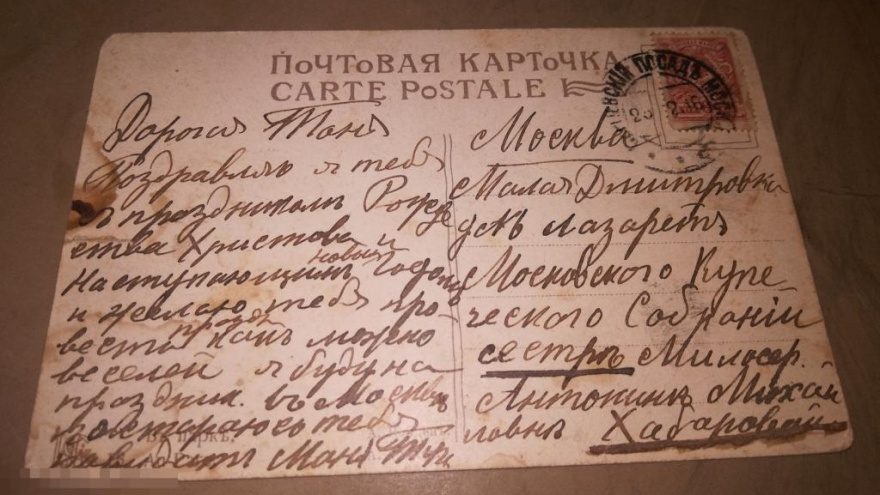 ПОЧТОВАЯ КАРТОЧКА
CARTE POSTALE
ПОСАДЪ
Дорогая Таня
Поздравляю я тебя
с праздникомъ Рожде
ства Христова и
новымъ
наступающимъ годомъ
и желаю тебя про
вести какъ можно
веселей я буду на
праздник. въ Москвѣ
постараюсь тебя
Маня
Москва
Малая Дмитровка
Лазаретъ
Московского Купе
ческого Собранія
сестрѣ Милосер.
Антонинѣ Михай
ловнѣ Хабаровой
Въ паркѣ.